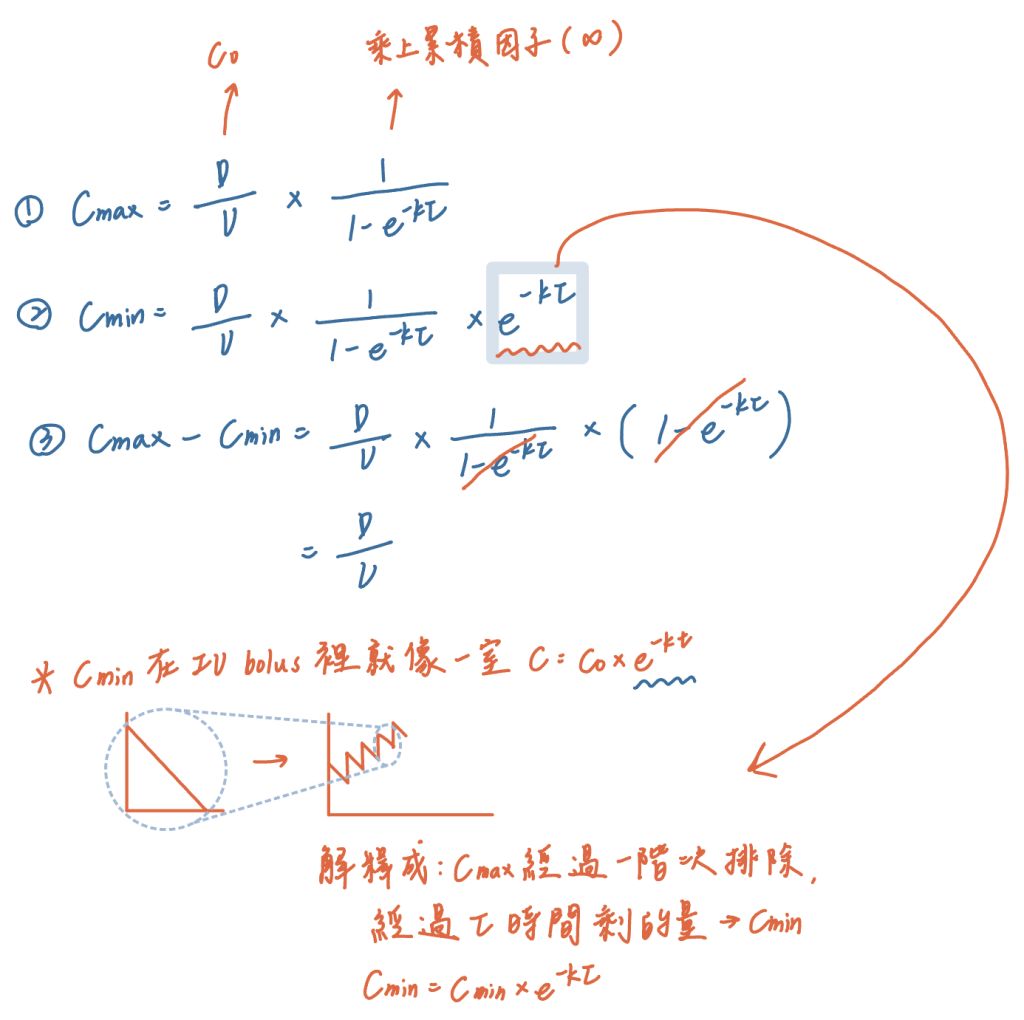 C0 乘上累積因子(∞)
① Cmax = D/V × 1/(1-e^-kτ)
② Cmin = D/V × 1/(1-e^-kτ) × e^-kτ
③ Cmax - Cmin = D/V × 1/(1-e^-kτ) × (1-e^-kτ)
= D/V
* Cmin 在 IV bolus 裡就像一室 C = C0 × e^-kt
解釋成: Cmax 經過一階次排除,
經過 τ 時間剩的量 → Cmin
Cmin = Cmin × e^-kτ